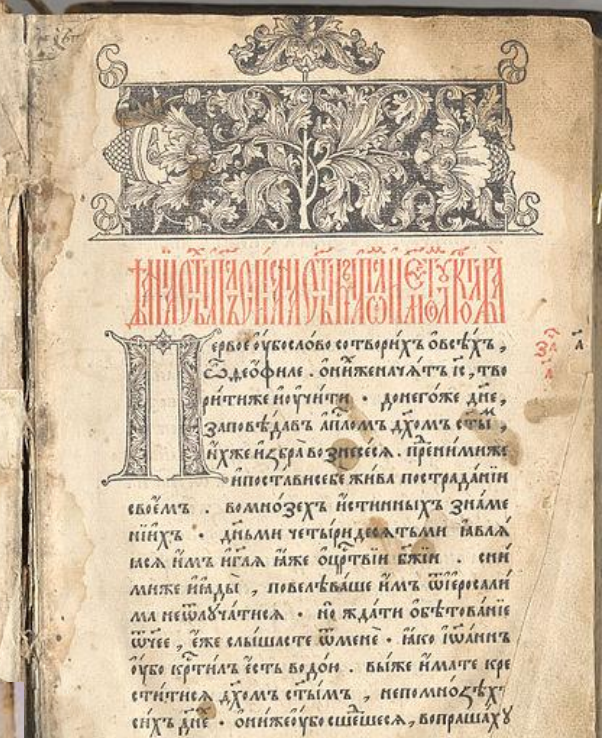 Первое оубо слово сотвори́хъ ѻ всѣ́хъ ,
ѽ дѳео́филе . ѻ ни́хже нача́тъ і҃с , тво
ри́ти же и҆ оучи́ти . до него́же дн҃е ,
заповѣ́давъ а҆пл҃омъ дх҃омъ ст҃ы́м ,
и҆́хже и҆збра̀ вознесе́сѧ . пре́д ни́миже
и҆ поста́ви себѐ жи́ва по страда́нїи
свое́мъ . во мно́зехъ и҆́стинныхъ зна́ме
нїихъ . дн҃ьми четы́ридесѧтьми ꙗ҆влѧ́
ꙗсѧ и҆̀мъ и҆ гл҃ѧ ꙗ҆́же ѻ цр҃твїи бж҃їи . с ни́
миже и҆ ꙗ҆ды̀ , повелѣва́ше и҆̀мъ ѿ і҆еросали́
ма не ѿлꙋча́тисѧ . но жда́ти ѻбѣтова́нїе
ѿч҃ее , е҆́же слы́шасте ѿ менѐ . ꙗ҆́ко і҆ѡа́ннъ
оу҆́бо кр҃ти́лъ е҆́сть водо́ю . вы́ же и҆́мате кре
сти́тисѧ дх҃омъ ст҃ы́мъ , не по мно́ѕѣхъ
си́хъ дн҃е . ѻни́ же оу҆́бо сше́дшесѧ , вопраша́хꙋ
за҃
а҃
а҃